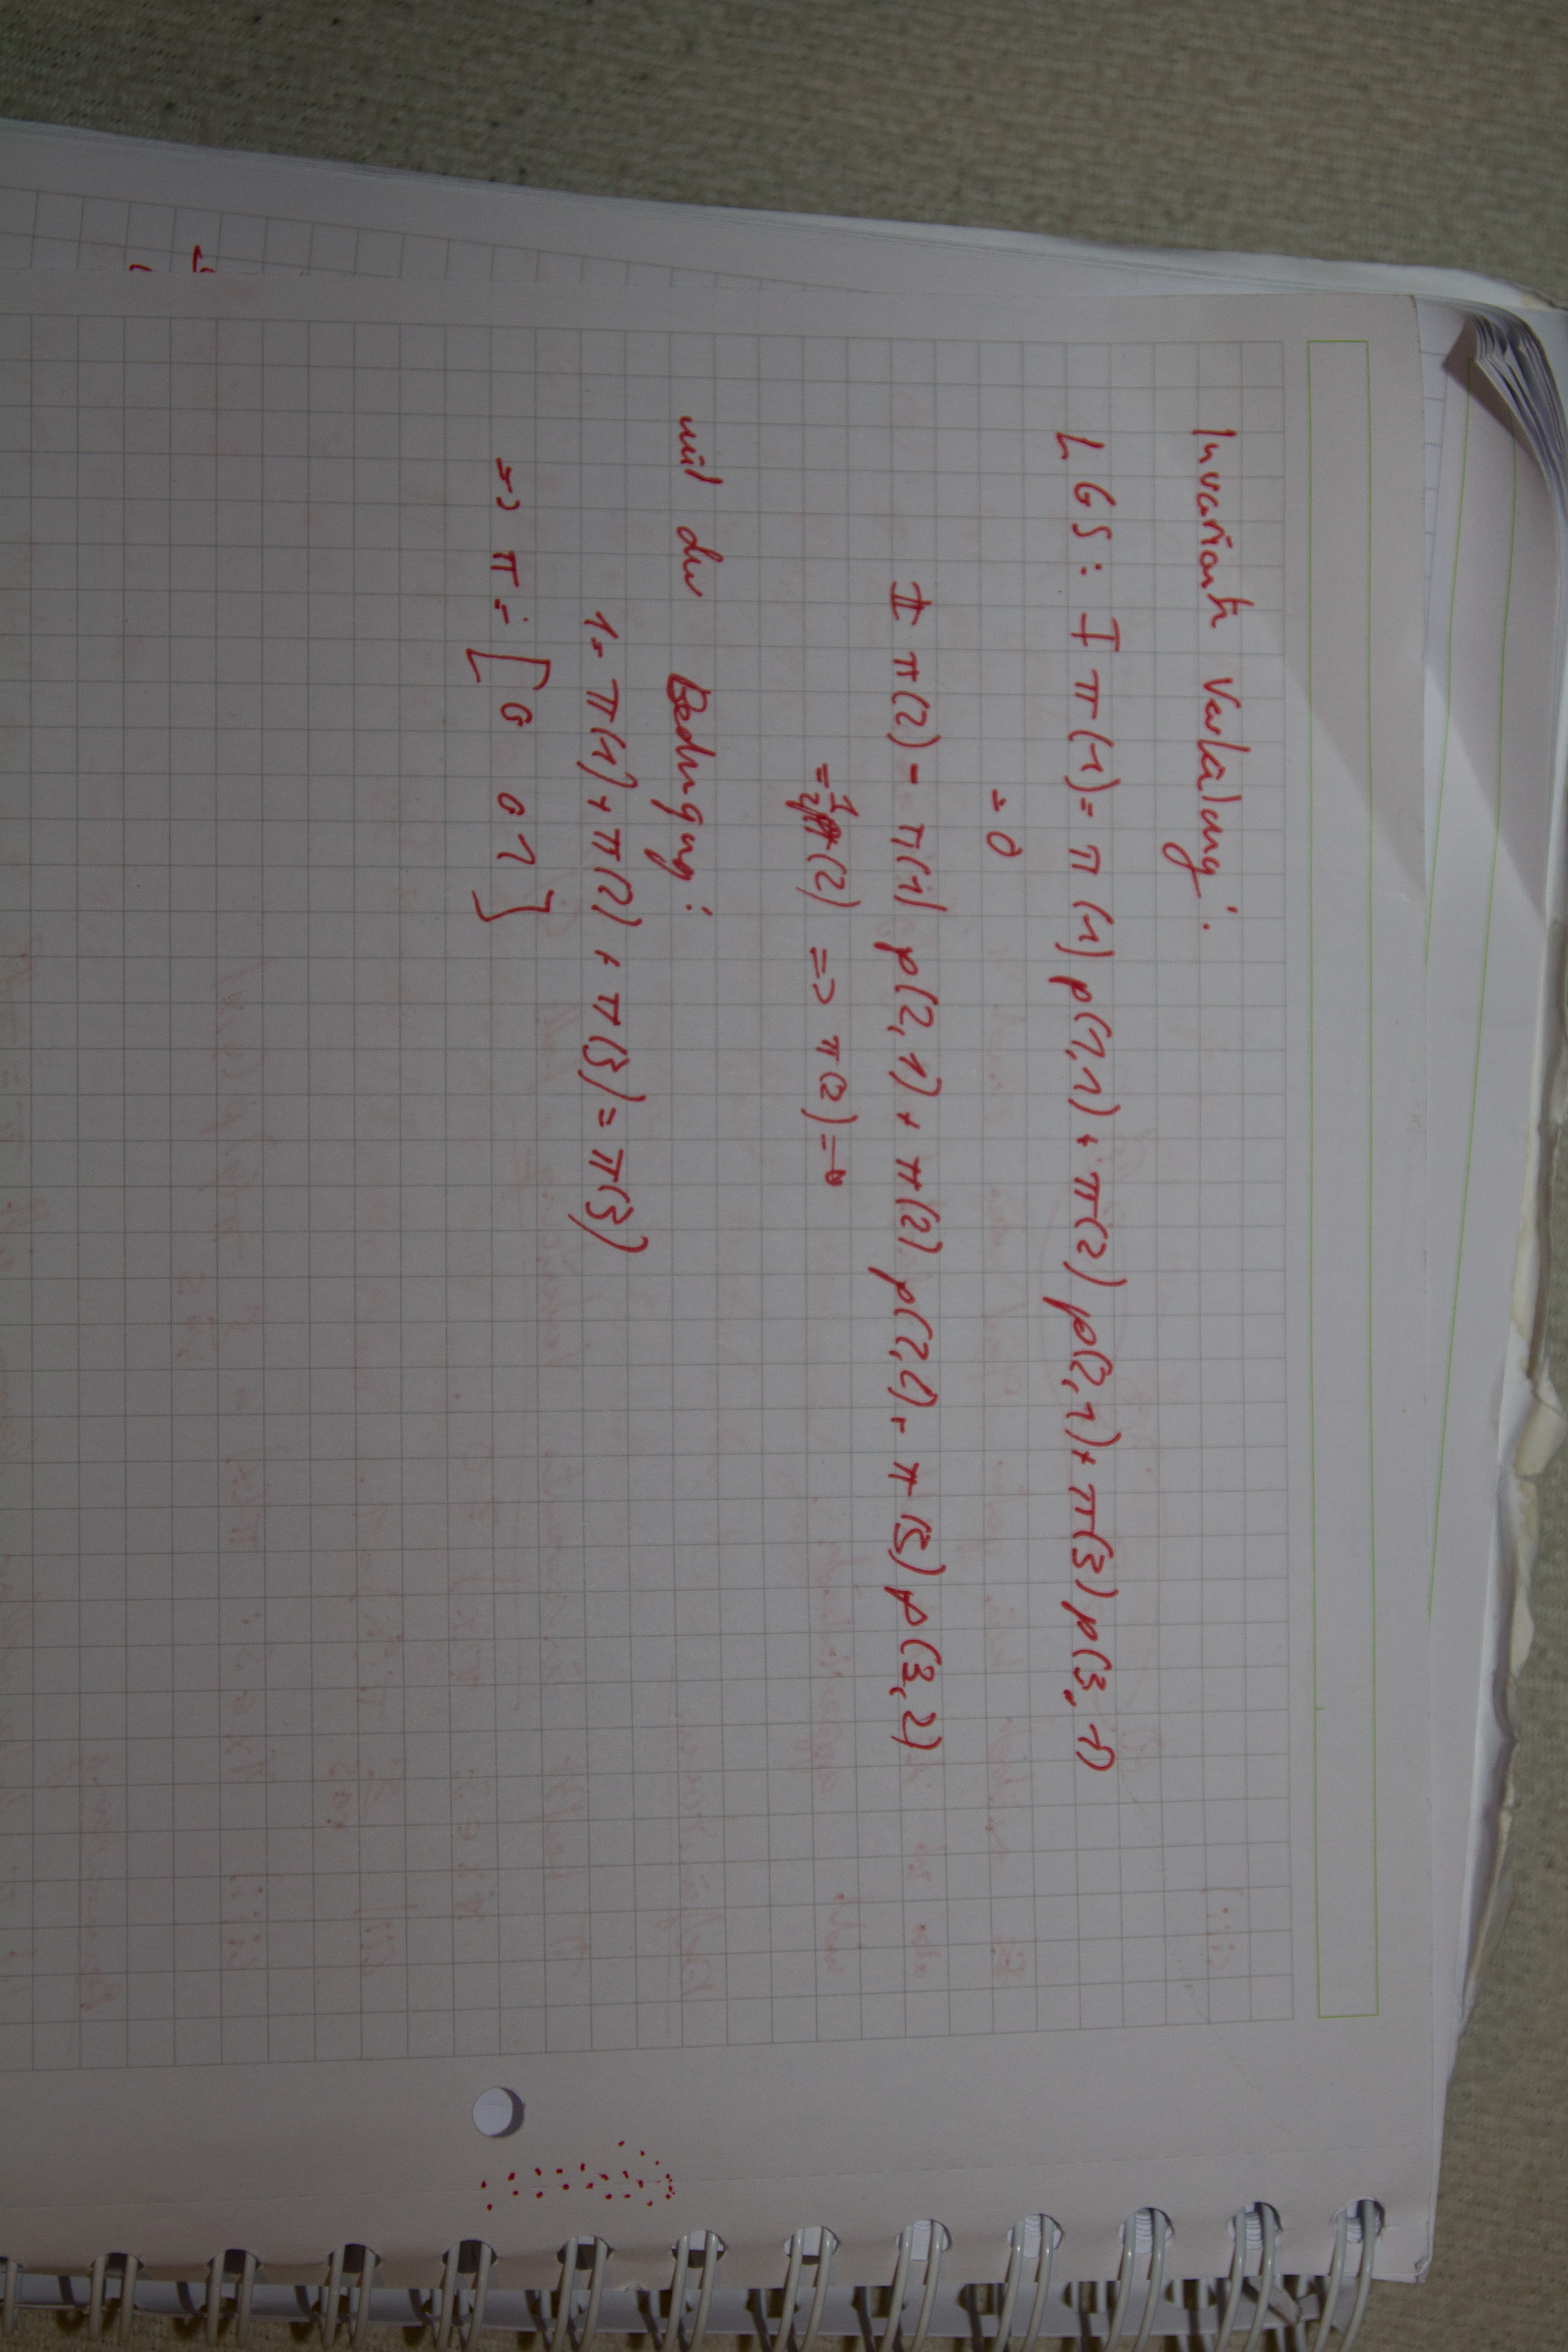 Invariante Verteilung:
LGS: I π(1) = π(1) p(1,1) + π(2) p(2,1) + π(3) p(3,1)
= 0
II π(2) = π(1) p(2,1) + π(2) p(2,2) + π(3) p(3,2)
= 1/2 π(2) => π(2) = 0
mit der Bedingung:
1 = π(1) + π(2) + π(3) = π(3)
=> π = [0 0 1]